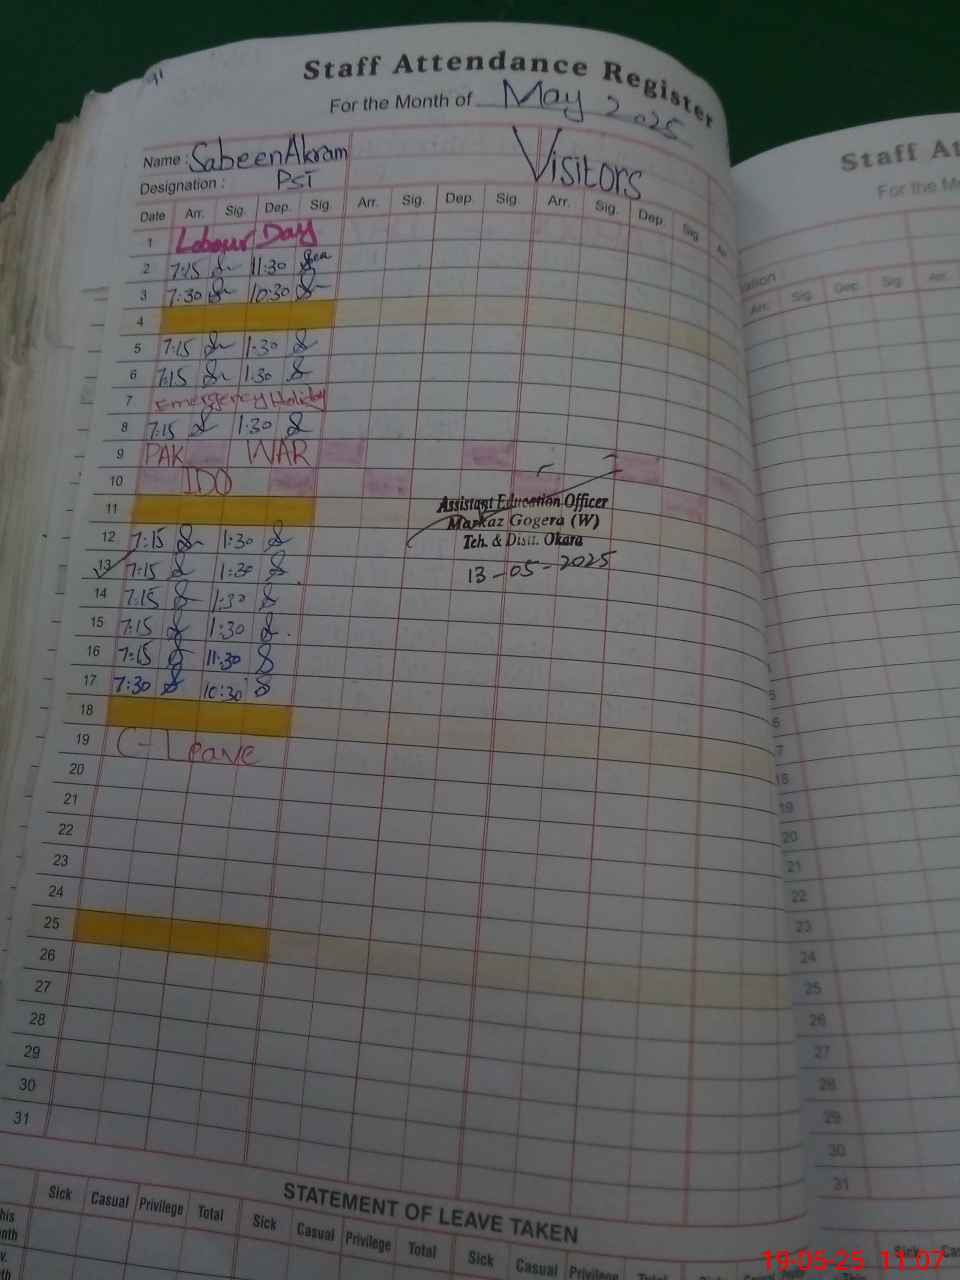 91
Staff Attendance Register
For the Month of May 2025
Name : Sabeen Akram
Visitors
Designation : PST
Date Arr. Sig. Dep. Sig. Arr. Sig. Dep. Sig. Arr. Sig. Dep. Sig
1 Labour Day
2 7:15 11:30
3 7:30 10:30
4
5 7:15 1:30
6 7:15 1:30
7 Emergency Holiday
8 7:15 1:30
9 PAK WAR
10 IDO
11
12 7:15 1:30
13 7:15 1:30
14 7:15 1:30
15 7:15 1:30
16 7:15 11:30
17 7:30 10:30
18
19 C-Leave
20
21
22
23
24
25
26
27
28
29
30
31
Assistant Education Officer
Markaz Gogera (W)
Teh. & Distt. Okara
13-05-2025
STATEMENT OF LEAVE TAKEN
Sick Casual Privilege Total Sick Casual Privilege Total Sick Casual Privilege Total
Staff At
For the M
ation :
Arr. Sig. Dep. Sig. Arr.
5
6
7
18
19
20
21
22
23
24
25
26
27
28
29
30
31
Sick Ca
19-05-25 11:07